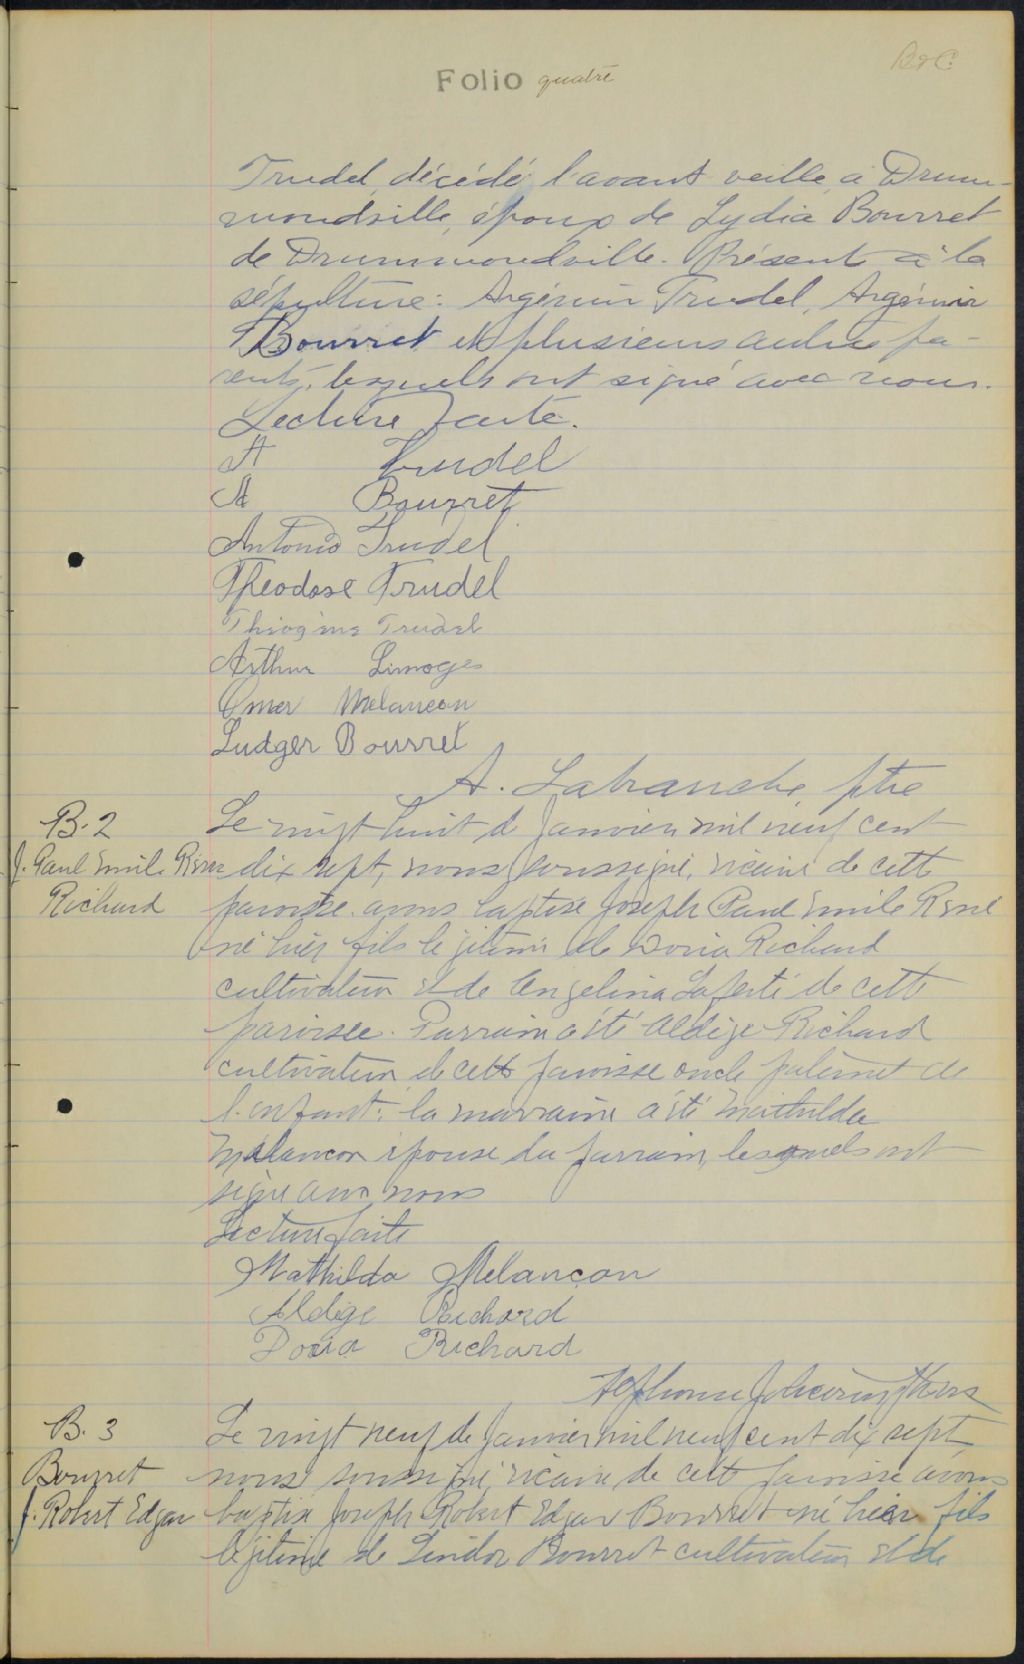 Folio quatre
B & C.
Trudel, décédé l'avant veille à Drum-
mondville, époux de Lydia Bourret
de Drummondville. Présent à la
sépulture: Argénim Trudel, Argénir
Bourret et plusieurs autres pa-
rents, lesquels ont signé avec nous.
Lecture faite.
A Trudel
A Bourret
Antonio Trudel
Theodose Trudel
Théogène Trudel
Arthur Limoges
Omer Melancon
Ludger Bourret
A. Labranche, ptre
B. 2
J. Paul Emile René
Richard
Le vingt huit de Janvier mil neuf cent
dix sept, nous soussigné, vicaire de cette
paroisse avons baptisé Joseph Paul Emile René
né hier fils légitime de Doria Richard
cultivateur et de Angelina Laferté de cette
paroisse. Parrain a été Aldège Richard
cultivateur de cette paroisse oncle paternel de
l'enfant: la marraine a été Mathilda
Melancon épouse du parrain, lesquels ont
signé avec nous
Lecture faite
Mathilda Melancon
Aldége Richard
Doria Richard
Alphonse
B. 3
Bourret
J. Robert Edgar
Le vingt neuf de Janvier mil neuf cent dix sept,
nous soussigné, vicaire de cette paroisse avons
baptisé Joseph Robert Edgar Bourret né hier fils
légitime de Lindor Bourret cultivateur et de